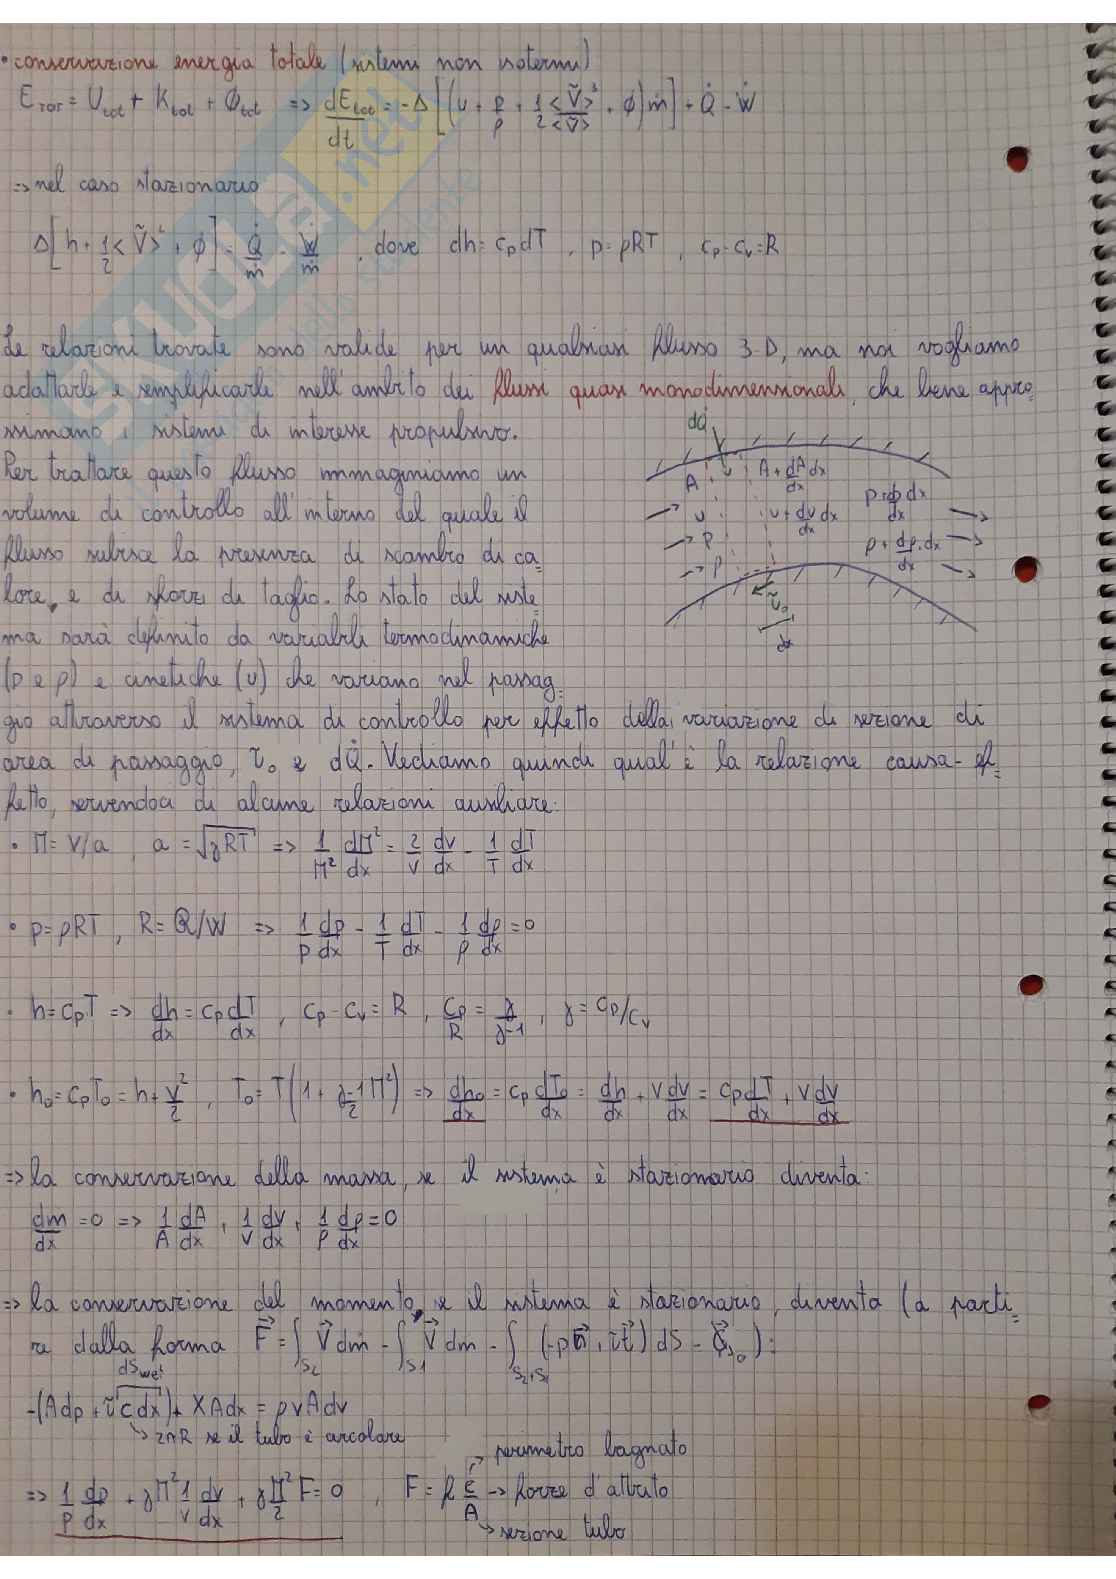 • conservazione energia totale (sistemi non isotermi)
E_TOT = U_tot + K_tot + Φ_tot => dE_tot/dt = -Δ[(u + p/ρ + 1/2 <ṽ>³/<ṽ> + φ)ṁ] + Q̇ - Ẇ
=> nel caso stazionario
Δ[h + 1/2 <ṽ>² + φ] = Q̇/ṁ - Ẇ/ṁ , dove dh = c_p dT , p = ρRT , c_p - c_v = R
Le relazioni trovate sono valide per un qualsiasi flusso 3-D, ma noi vogliamo
adattarle e semplificarle nell'ambito dei flussi quasi monodimensionali, che bene appro=
ssimano i sistemi di interesse propulsivo.
Per trattare questo flusso immaginiamo un
volume di controllo all'interno del quale il
flusso subisce la presenza di scambio di ca=
lore, e di sforzi di taglio. Lo stato del siste=
ma sarà definito da variabili termodinamiche
(p e ρ) e cinetiche (v) che variano nel passag=
dQ̇
A
A + dA/dx dx
v
v + dv/dx dx
p
ρ
p + dp/dx dx
ρ + dρ/dx dx
τ̃₀
dx
gio attraverso il sistema di controllo per effetto della variazione di sezione di
area di passaggio, τ₀ e dQ̇. Vediamo quindi qual'è la relazione causa-ef=
fetto, servendoci di alcune relazioni ausiliare:
• M = v/a , a = √γRT => 1/M² dM²/dx = 2/v dv/dx - 1/T dT/dx
• p = ρRT , R = ℛ/W => 1/p dp/dx - 1/T dT/dx - 1/ρ dρ/dx = 0
• h = c_p T => dh/dx = c_p dT/dx , c_p - c_v = R , c_p/R = γ/γ-1 , γ = c_p/c_v
• h₀ = c_p T₀ = h + v²/2 , T₀ = T(1 + γ-1/2 M²) => dh₀/dx = c_p dT₀/dx = dh/dx + v dv/dx = c_p dT/dx + v dv/dx
=> la conservazione della massa, se il sistema è stazionario diventa:
dm/dx = 0 => 1/A dA/dx + 1/v dv/dx + 1/ρ dρ/dx = 0
=> la conservazione del momento, se il sistema è stazionario, diventa (a parti=
re dalla forma F⃗ = ∫_S2 V⃗ dṁ - ∫_S1 V⃗ dṁ - ∫_S2+S1 (-pn⃗ + τt⃗) dS - ):
dS_wet
-(Adp + τ c dx) + XAdx = ρvAdv
↳ 2πR se il tubo è circolare
perimetro bagnato
=> 1/p dp/dx + γM² 1/v dv/dx + γM²/2 F = 0 , F = f c/A → forze d'attrito
↳ sezione tubo